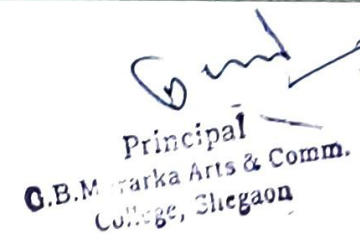 Principal
G.B.M rarka Arts & Comm.
College, Shegaon